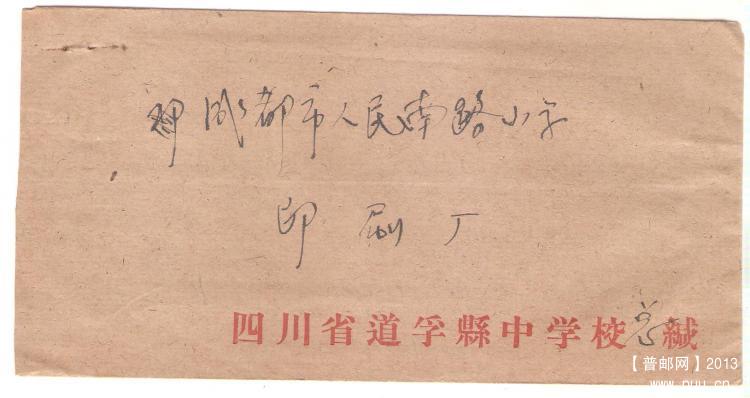 邮成都市人民南路小学
印刷厂
四川省道孚縣中学校 缄
【普邮网】2013
www.puu.cn